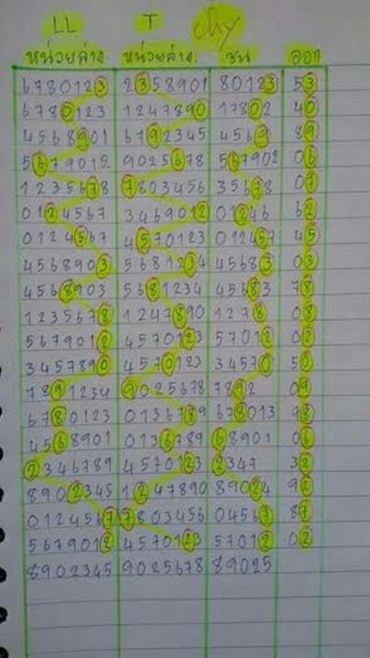 LL T chy
หน่วยล่าง หน่วยล่าง. ชน ออก
6780123 2358901 80123 53
6780123 1247890 17802 40
4568901 6192345 4569 89
5679012 9025678 567902 06
1235678 7803456 35678 07
0124567 3469012 01246 62
0124567 4570123 012457 45
4568903 5681234 45683 03
4568903 5681234 45683 78
1235678 1247890 1278 08
5679012 4570123 57012 02
3457890 4570123 34570 50
7891234 9025678 7892 09
6780123 0136789 678013 98
4568901 0136789 68901 06
2346789 4570123 2347 32
8902345 1247890 89024 92
0124567 7803456 04567 87
5679012 4570123 57012 02
8902345 9025678 89025